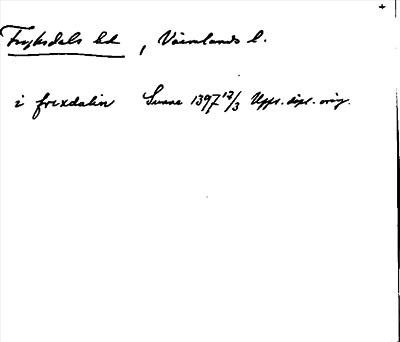 Fryksdals hd, Värmlands l.
i frexdalin Sunne 1397 12/3 Upps. dipl. orig.